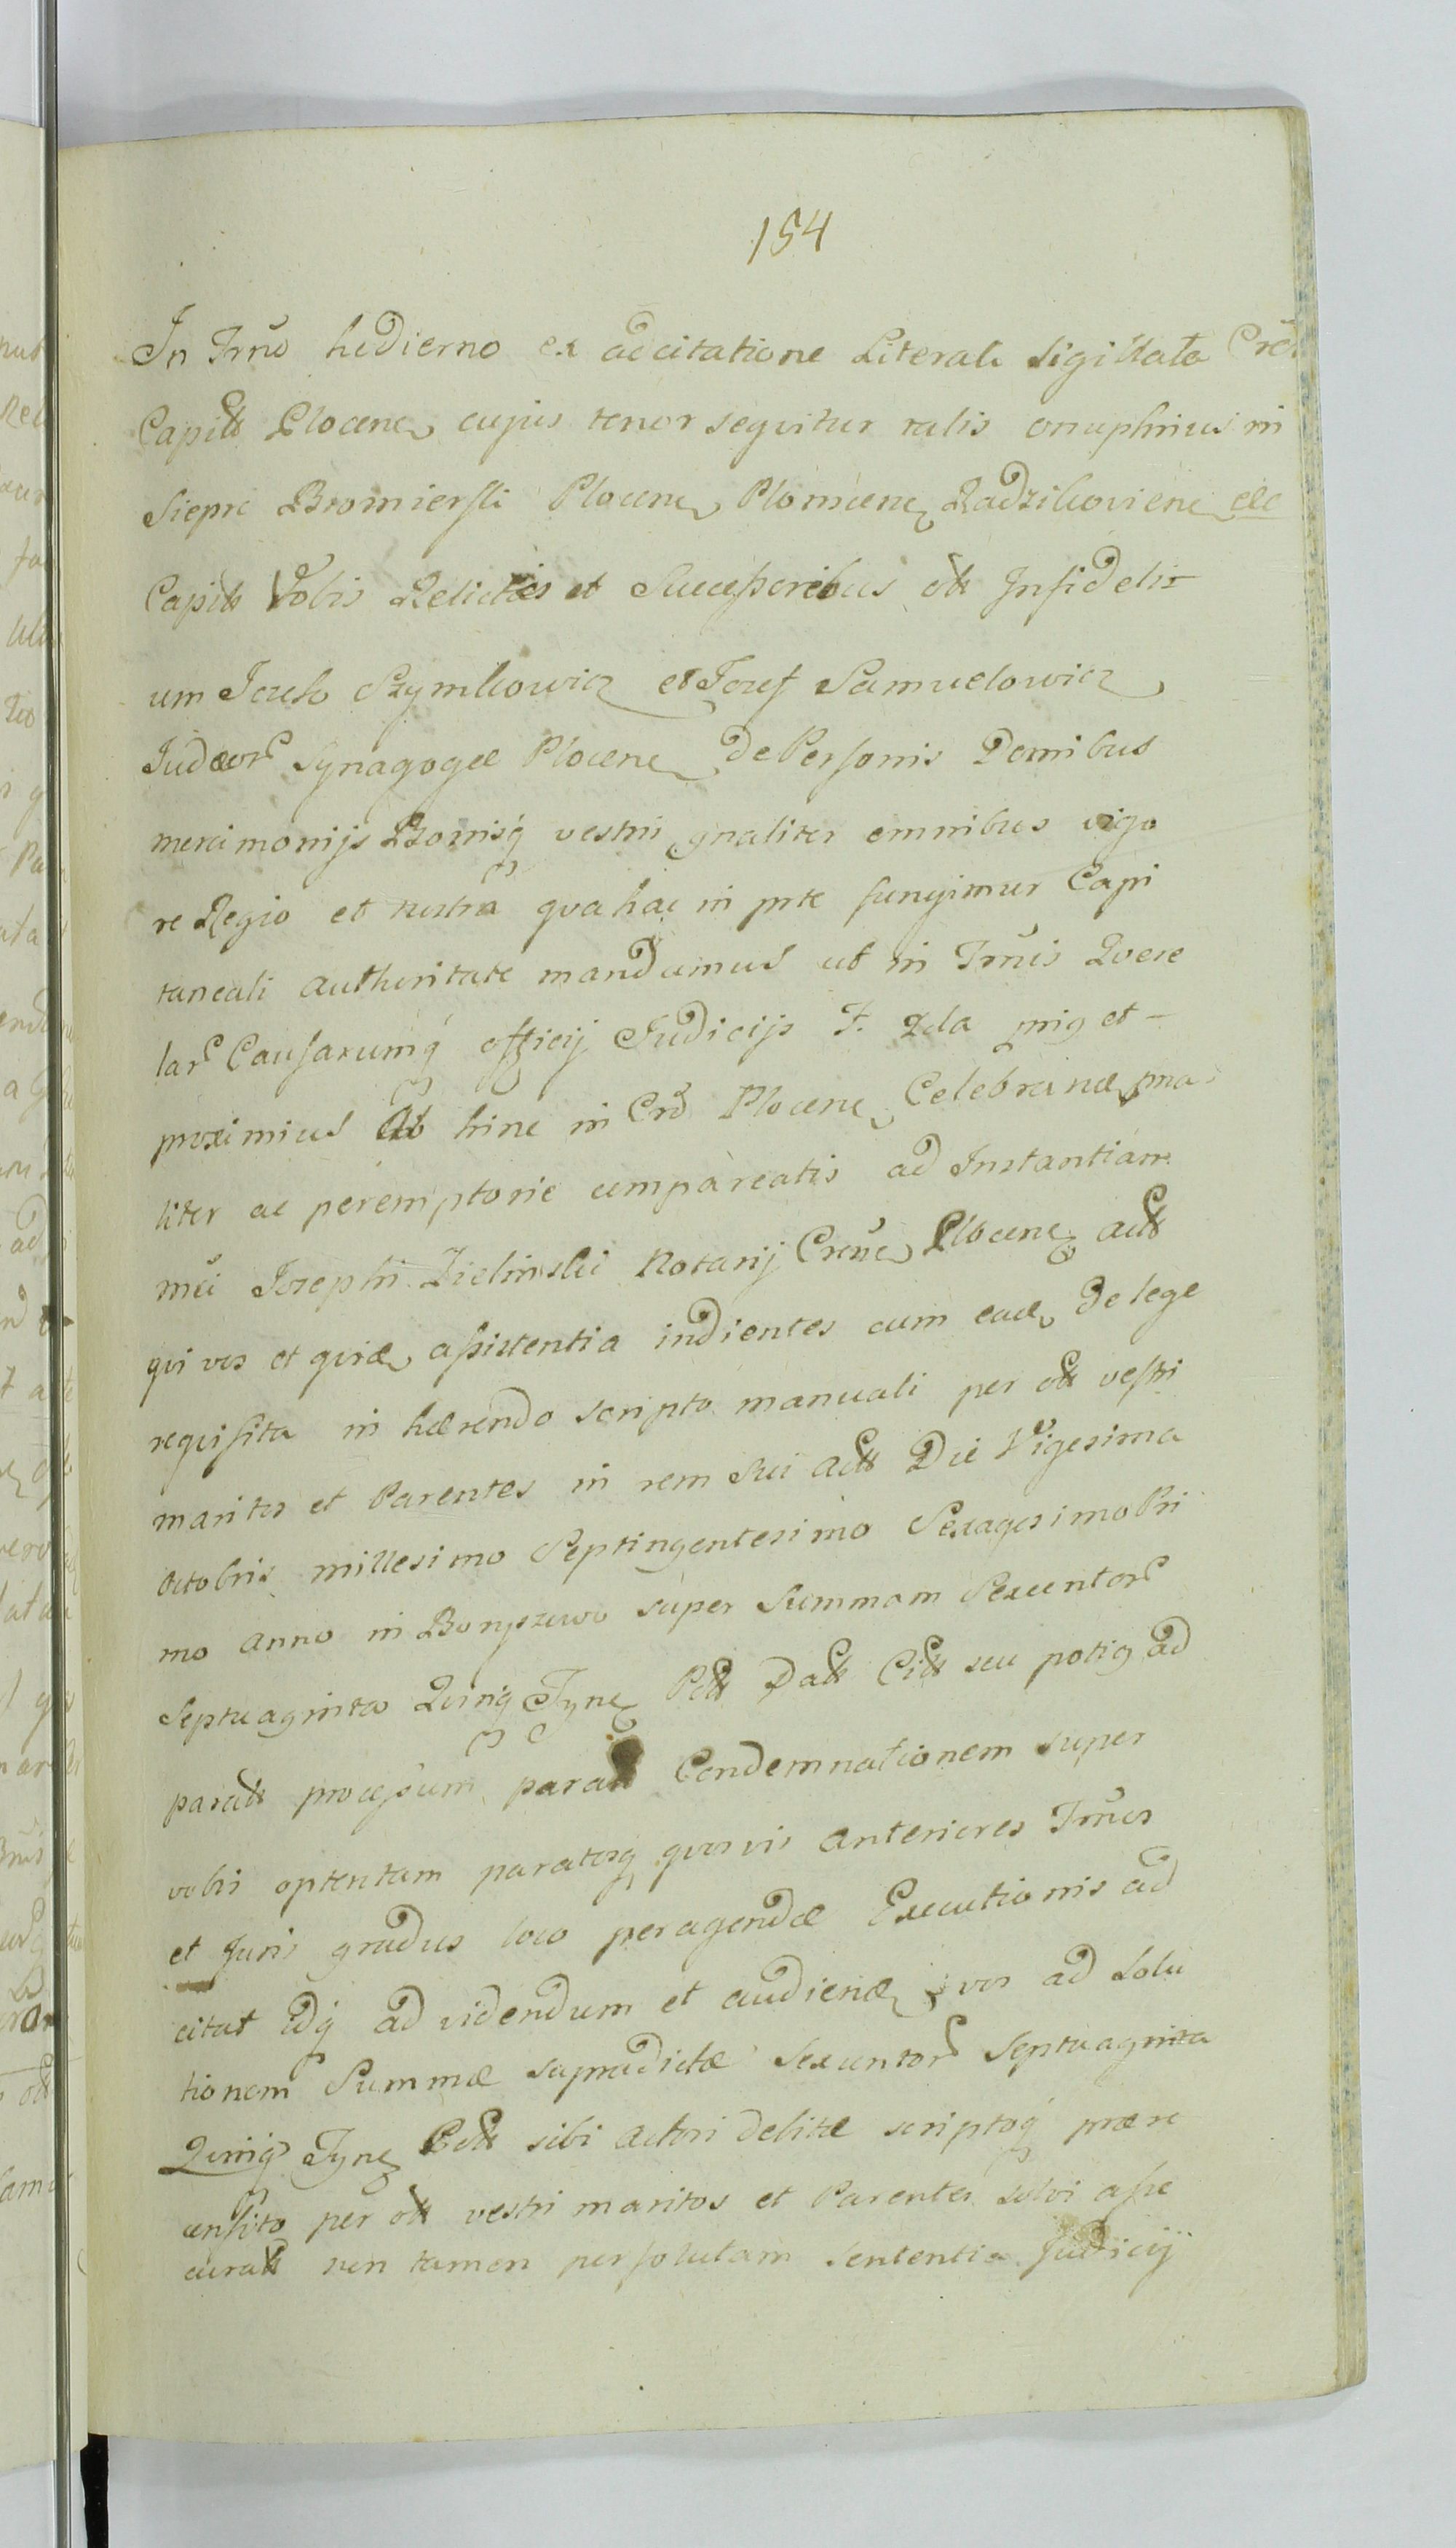 154
In Trno hodierno ex adcitatione Literali Sigillata
Capit Plocen cujus tenor sequitur talis onuphrius in
Siepre Bromierski Plocen Plonicen Radzikovien etc
Capit Vobis Relictis et Successoribus ott Infideli
um Icek Szymkowicz et Jozef Samuelowicz
Judeor Synagogæ Plocen de Personis Domibus
mercimonijs Bonisq vestri gnaliter omnibus vigo
re Regio et nostra qva hac in pte fungimur Capi
taneali authoritate mandamus ut in Trnis Qvere
lar Causarumq officij Judicijs F. 2da prig et
proximius Ab hinc in Cro Plocen Celebranæ pna
liter ac peremptorie compareatis ad Instantiam
mci Josephi Zielinski Notarij Cren Plocen act
qvi vos et qvæ assistentia indientes cum eaæ de lege
reqvisita in hærendo scripto manuali per ott vestri
maritos et Parentes in rem sui act Die Vigesima
octobris millesimo Septingentesimo Sexagesimo Pri
mo anno in Bonyszewo super Summam Sexcentor
Septuaginta Qvinq Tyn Pctt Datt Citt seu potig ad
paratt processum paratt Condemnationem super
vobis optentam paratosq qvosvis anteriores Trnos
et Juris gradus loco peragendæ Executionis ad
citat idq ad videndum et audienæ vos ad solu
tionem Summæ supradictæ sexcentor Septuaginta
Qvinq Tyn Pctt sibi actori debitæ scriptoq prære
censito per ott vestri maritos et Parentes solvi asse
curatt non tamen persolutam sententia Judicij